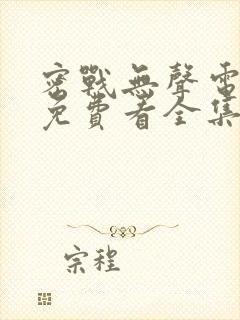 密戰無聲電
免費看全集
宗程